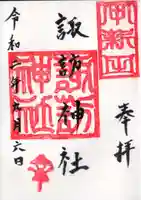 奉拝
諏訪神社
令和二年九月六日
諏訪
神社